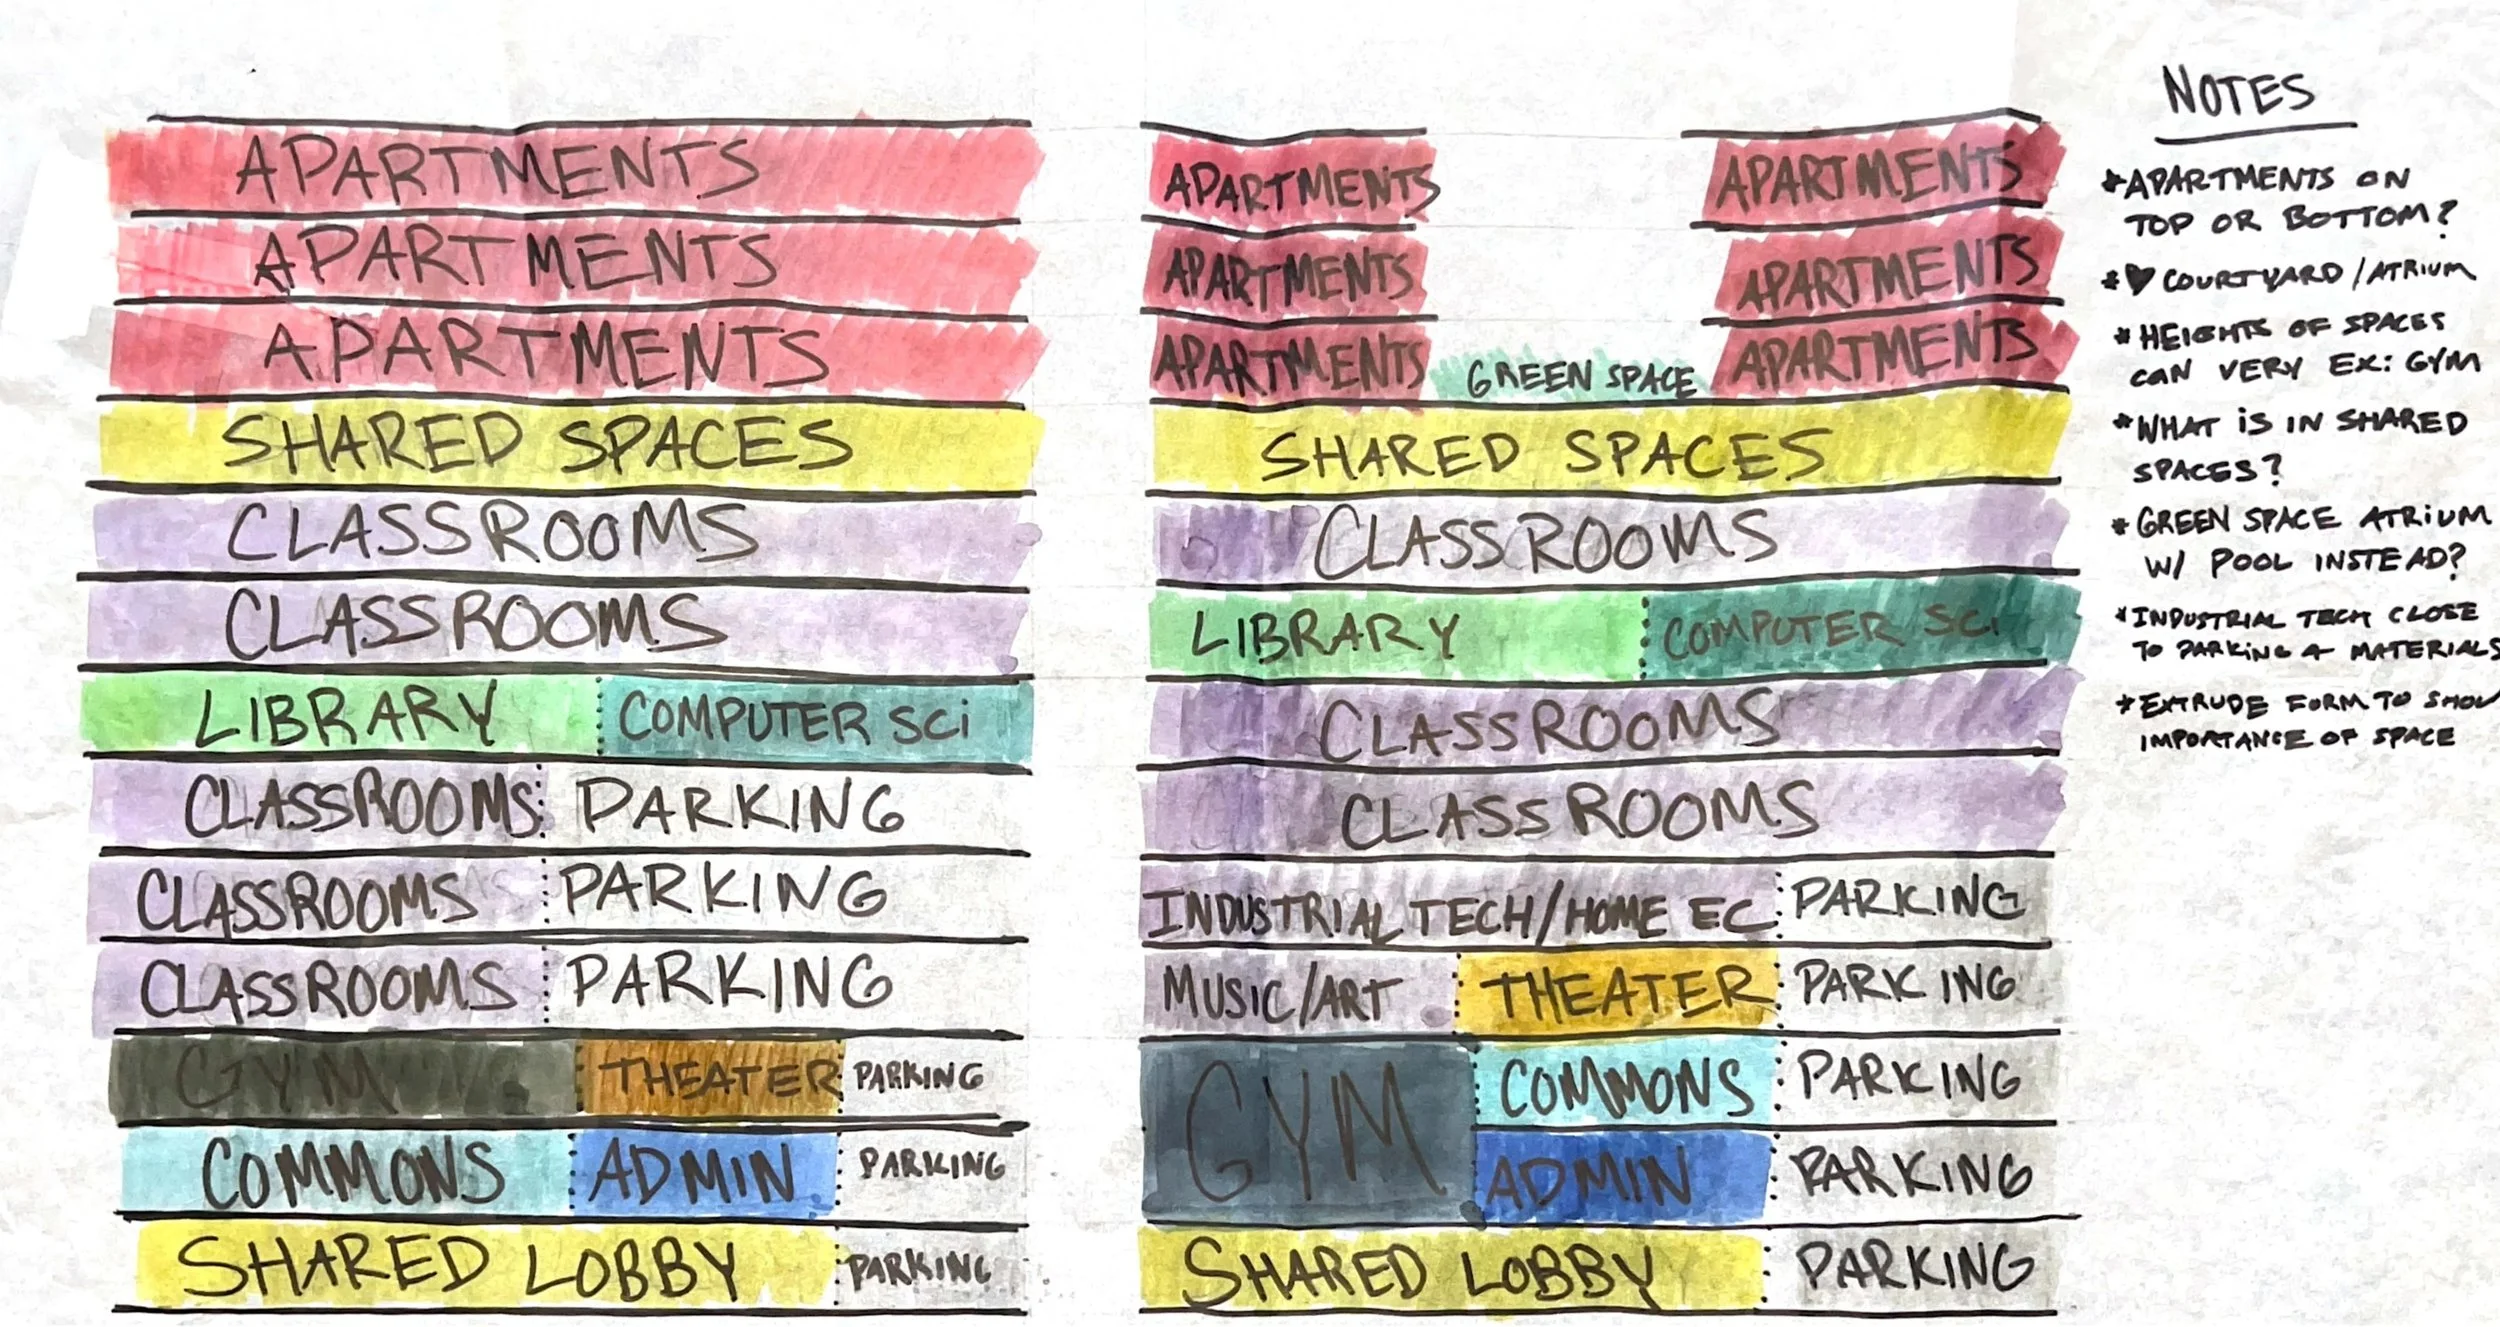 APARTMENTS
APARTMENTS
APARTMENTS
SHARED SPACES
CLASSROOMS
CLASSROOMS
LIBRARY COMPUTER SCi
CLASSROOMS PARKING
CLASSROOMS PARKING
CLASSROOMS PARKING
GYM THEATER PARKING
COMMONS ADMIN PARKING
SHARED LOBBY PARKING
APARTMENTS APARTMENTS
APARTMENTS APARTMENTS
APARTMENTS GREEN SPACE APARTMENTS
SHARED SPACES
CLASSROOMS
LIBRARY COMPUTER SCi
CLASSROOMS
CLASSROOMS
INDUSTRIAL TECH/HOME EC PARKING
MUSIC/ART THEATER PARKING
GYM COMMONS PARKING
ADMIN PARKING
SHARED LOBBY PARKING
NOTES
*APARTMENTS ON
TOP OR BOTTOM?
*♥ COURTYARD/ATRIUM
*HEIGHTS OF SPACES
CAN VERY EX: GYM
*WHAT iS IN SHARED
SPACES?
*GREEN SPACE ATRiUM
W/ POOL INSTEAD?
*INDUSTRIAL TECH CLOSE
TO PARKiNG & MATERIALS
*EXTRUDE FORM TO SHOW
IMPORTANCE OF SPACE